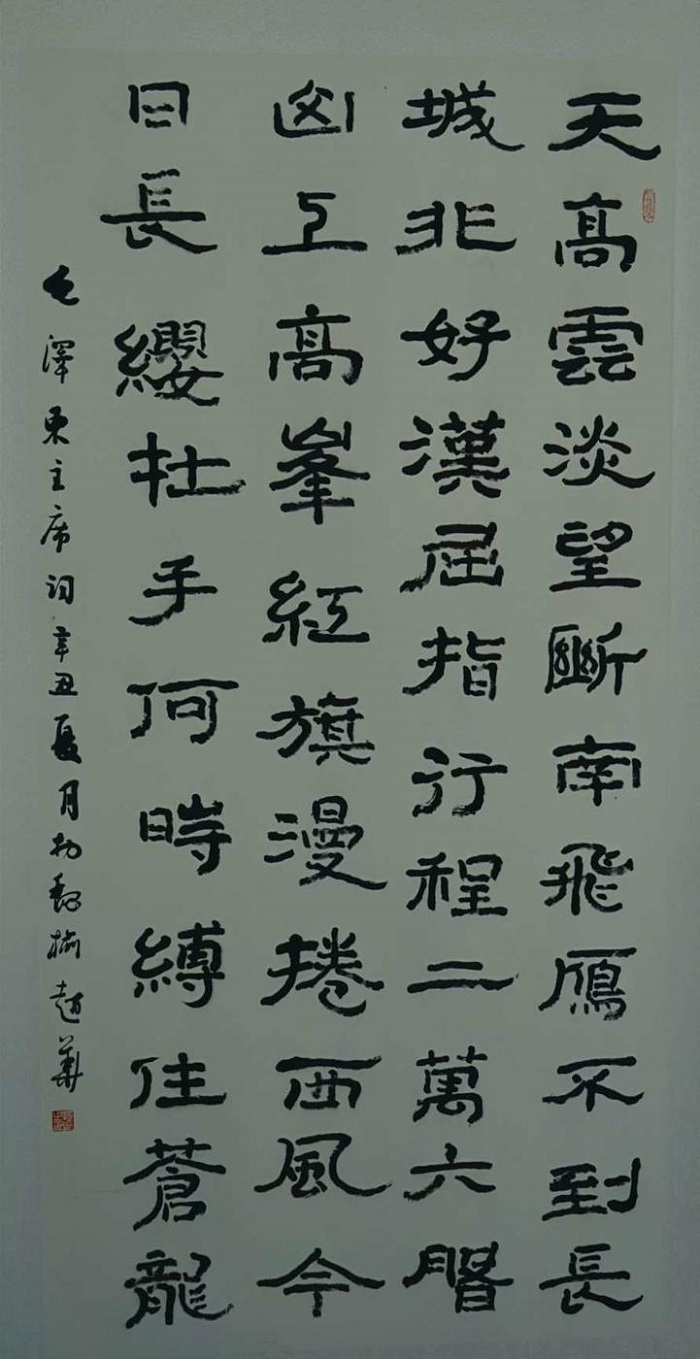 天高雲淡望斷南飛鴈不到長
城非好漢屈指行程二萬六盤
山上高峯紅旗漫捲西風今
日長纓在手何時縛住蒼龍
毛澤東主席詞辛丑夏月於榆趙華